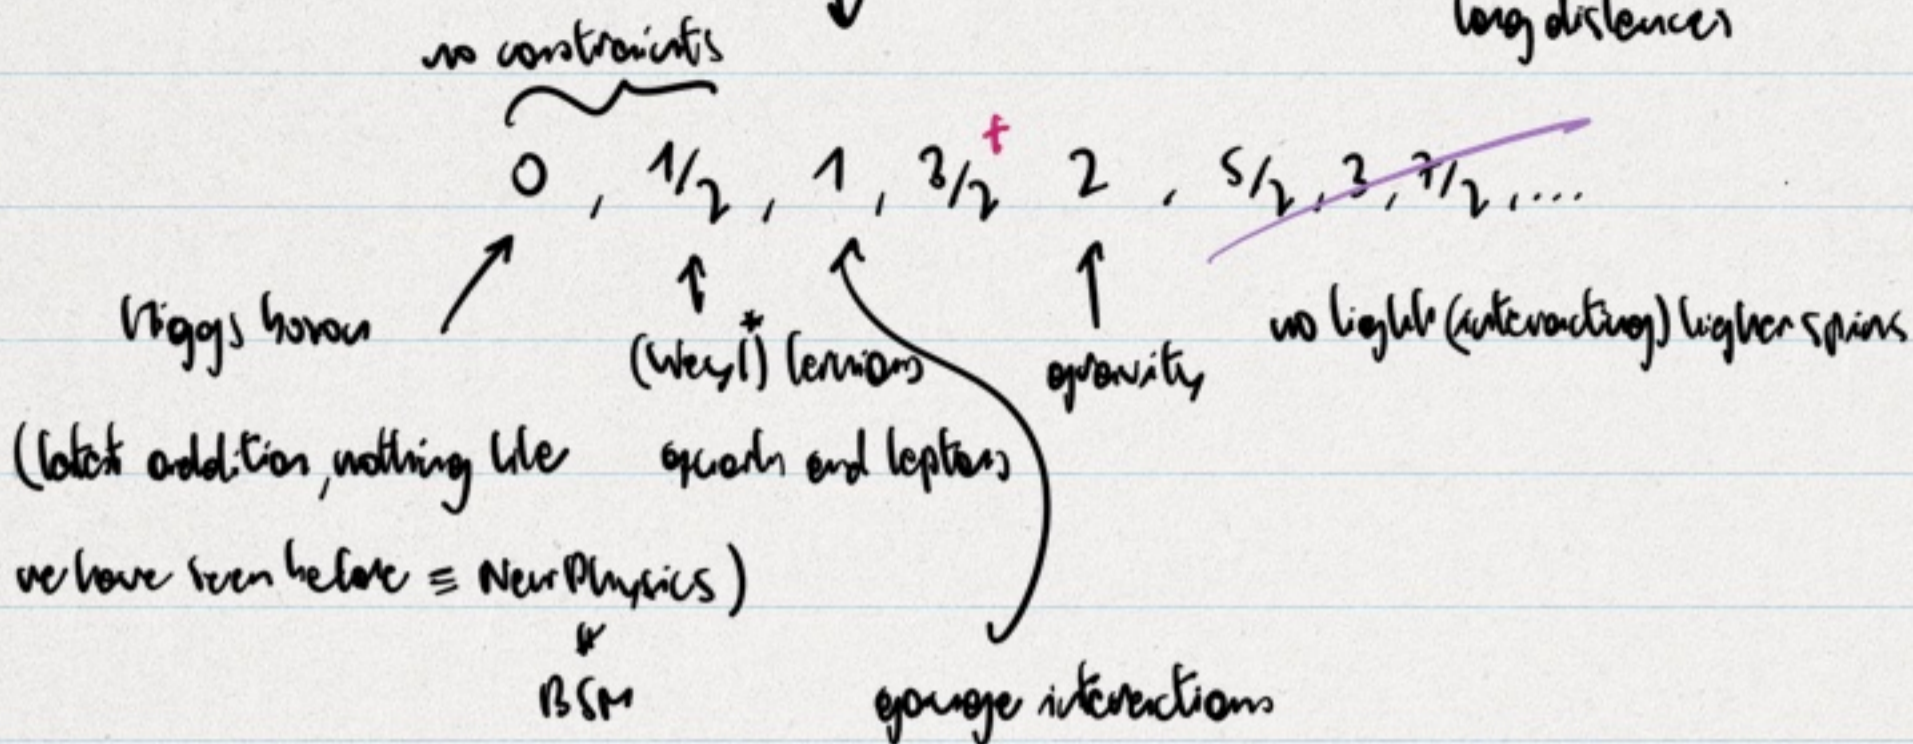 long distances
no constraints
0 , 1/2 , 1 , 3/2 † 2 , 5/2 , 3 , 7/2 , ....
Higgs boson
(Weyl)* fermions
gravity
no light (interacting) higher spins
(latest addition, nothing like
quarks and leptons
we have seen before ≡ New Physics)
BSM
gauge interactions